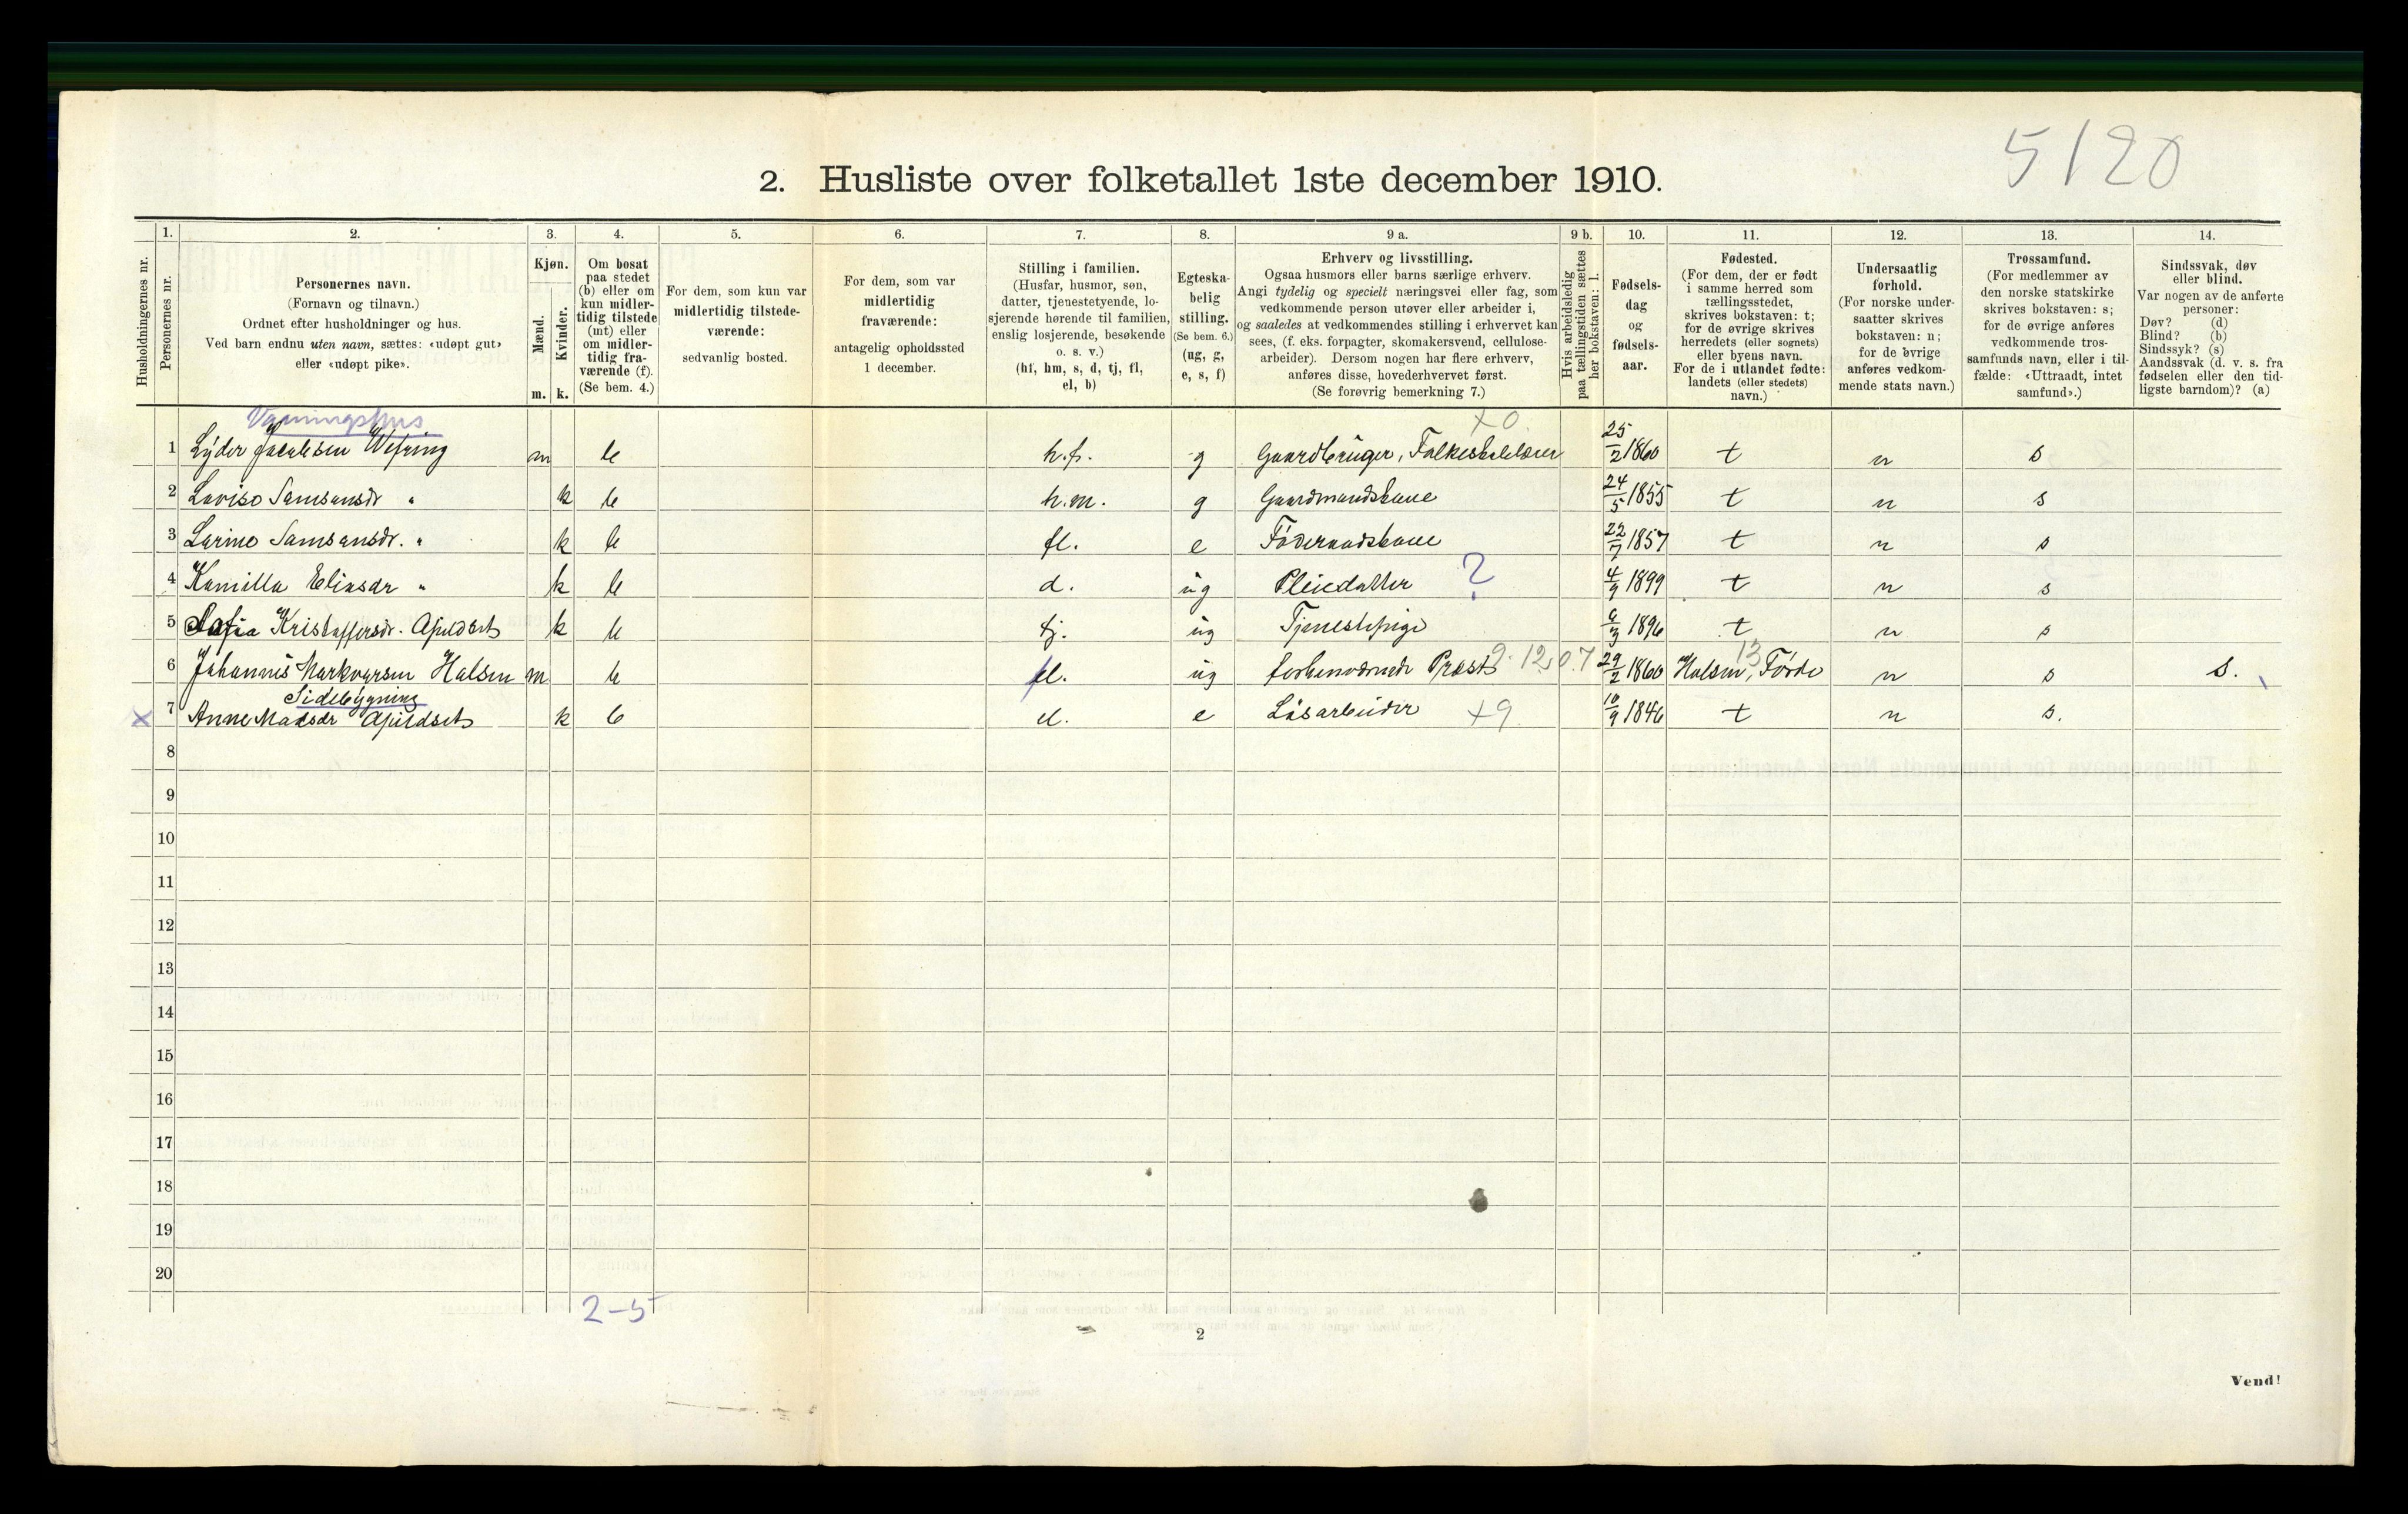 5120
2. Husliste over folketallet 1ste december 1910.
Husholdningernes nr.
1.
Personernes nr.
2.
Personernes navn.
(Fornavn og tilnavn.)
Ordnet efter husholdninger og hus.
Ved barn endnu uten navn, sættes: «udøpt gut»
eller «udøpt pike».
3.
Kjøn.
Mænd.
Kvinder.
m. k.
4.
Om bosat
paa stedet
(b) eller om
kun midler-
tidig tilstede
(mt) eller
om midler-
tidig fra-
værende (f).
(Se bem. 4.)
5.
For dem, som kun var
midlertidig tilstede-
værende:
sedvanlig bosted.
6.
For dem, som var
midlertidig
fraværende:
antagelig opholdssted
1 december.
7.
Stilling i familien.
(Husfar, husmor, søn,
datter, tjenestetyende, lo-
sjerende hørende til familien,
enslig losjerende, besøkende
o. s. v.)
(hf, hm, s, d, tj, fl,
el, b)
8.
Egteska-
belig
stilling.
(Se bem. 6.)
(ug, g,
e, s, f)
9 a.
Erhverv og livsstilling.
Ogsaa husmors eller barns særlige erhverv.
Angi tydelig og specielt næringsvei eller fag, som
vedkommende person utøver eller arbeider i,
og saaledes at vedkommendes stilling i erhvervet kan
sees, (f. eks. forpagter, skomakersvend, cellulose-
arbeider). Dersom nogen har flere erhverv,
anføres disse, hovederhvervet først.
(Se forøvrig bemerkning 7.)
9 b.
Hvis arbeidsledig
paa tællingstiden sættes
her bokstaven: l.
10.
Fødsels-
dag
og
fødsels-
aar.
11.
Fødested.
(For dem, der er født
i samme herred som
tællingsstedet,
skrives bokstaven: t;
for de øvrige skrives
herredets (eller sognets)
eller byens navn.
For de i utlandet fødte:
landets (eller stedets)
navn.)
12.
Undersaatlig
forhold.
(For norske under-
saatter skrives
bokstaven: n;
for de øvrige
anføres vedkom-
mende stats navn.)
13.
Trossamfund.
(For medlemmer av
den norske statskirke
skrives bokstaven: s;
for de øvrige anføres
vedkommende tros-
samfunds navn, eller i til-
fælde: «Uttraadt, intet
samfund».)
14.
Sindssvak, døv
eller blind.
Var nogen av de anførte
personer:
Døv? (d)
Blind? (b)
Sindssyk? (s)
Aandssvak (d. v. s. fra
fødselen eller den tid-
ligste barndom)? (a)
Vaaningshus
+0
1 Lyder Jacobsen Wefring m b h.f. g Gaardbruger, Folkeskolelærer 25/2 1860 t n s
2 Lovise Samsonsdr " k b h.m. g Gaardmandskone 24/5 1855 t n s
3 Larine Samsonsdr. " k b fl. e Føderaadskone 22/7 1857 t n s
4 Kamilla Eliasdr " k b d. ug Pleiedatter ? 4/9 1899 t n s
5 Sofia Kristoffersdr. Apeldset k b tj. ug Tjenestepige 6/3 1896 t n s
6 Johannis Markvarsen Halsen m b el. ug forhenværende Præst 9.12.0.7 29/2 1860 Halsen, Førde 13 n s s.
Sidebygning
x 7 Anne Madsdr Apeldset k b el. e Løsarbeider +9 10/9 1846 t n s.
8
9
10
11
12
13
14
15
16
17
18
19
20
2-5
2
Vend!